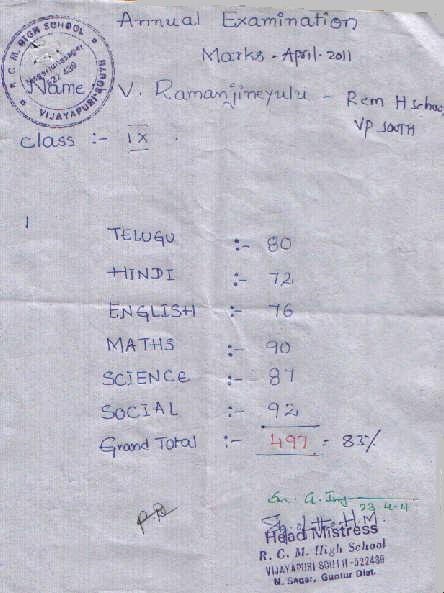 Annual Examination
Marks - April - 2011
R. C. M. HIGH SCHOOL
Nagarjunasagar
522 439
VIJAYAPURI SOUTH
Name V. Ramanjineyulu - Rcm H School
VP SOUTH
Class :- IX
1
TELUGU :- 80
HINDI :- 72
ENGLISH :- 76
MATHS :- 90
SCIENCE :- 87
SOCIAL :- 92
Grand Total :- 497 = 83%
23-4-11
Head Mistress
R. C. M. High School
VIJAYAPURI SOUTH-522439
N. Sagar, Guntur Dist.